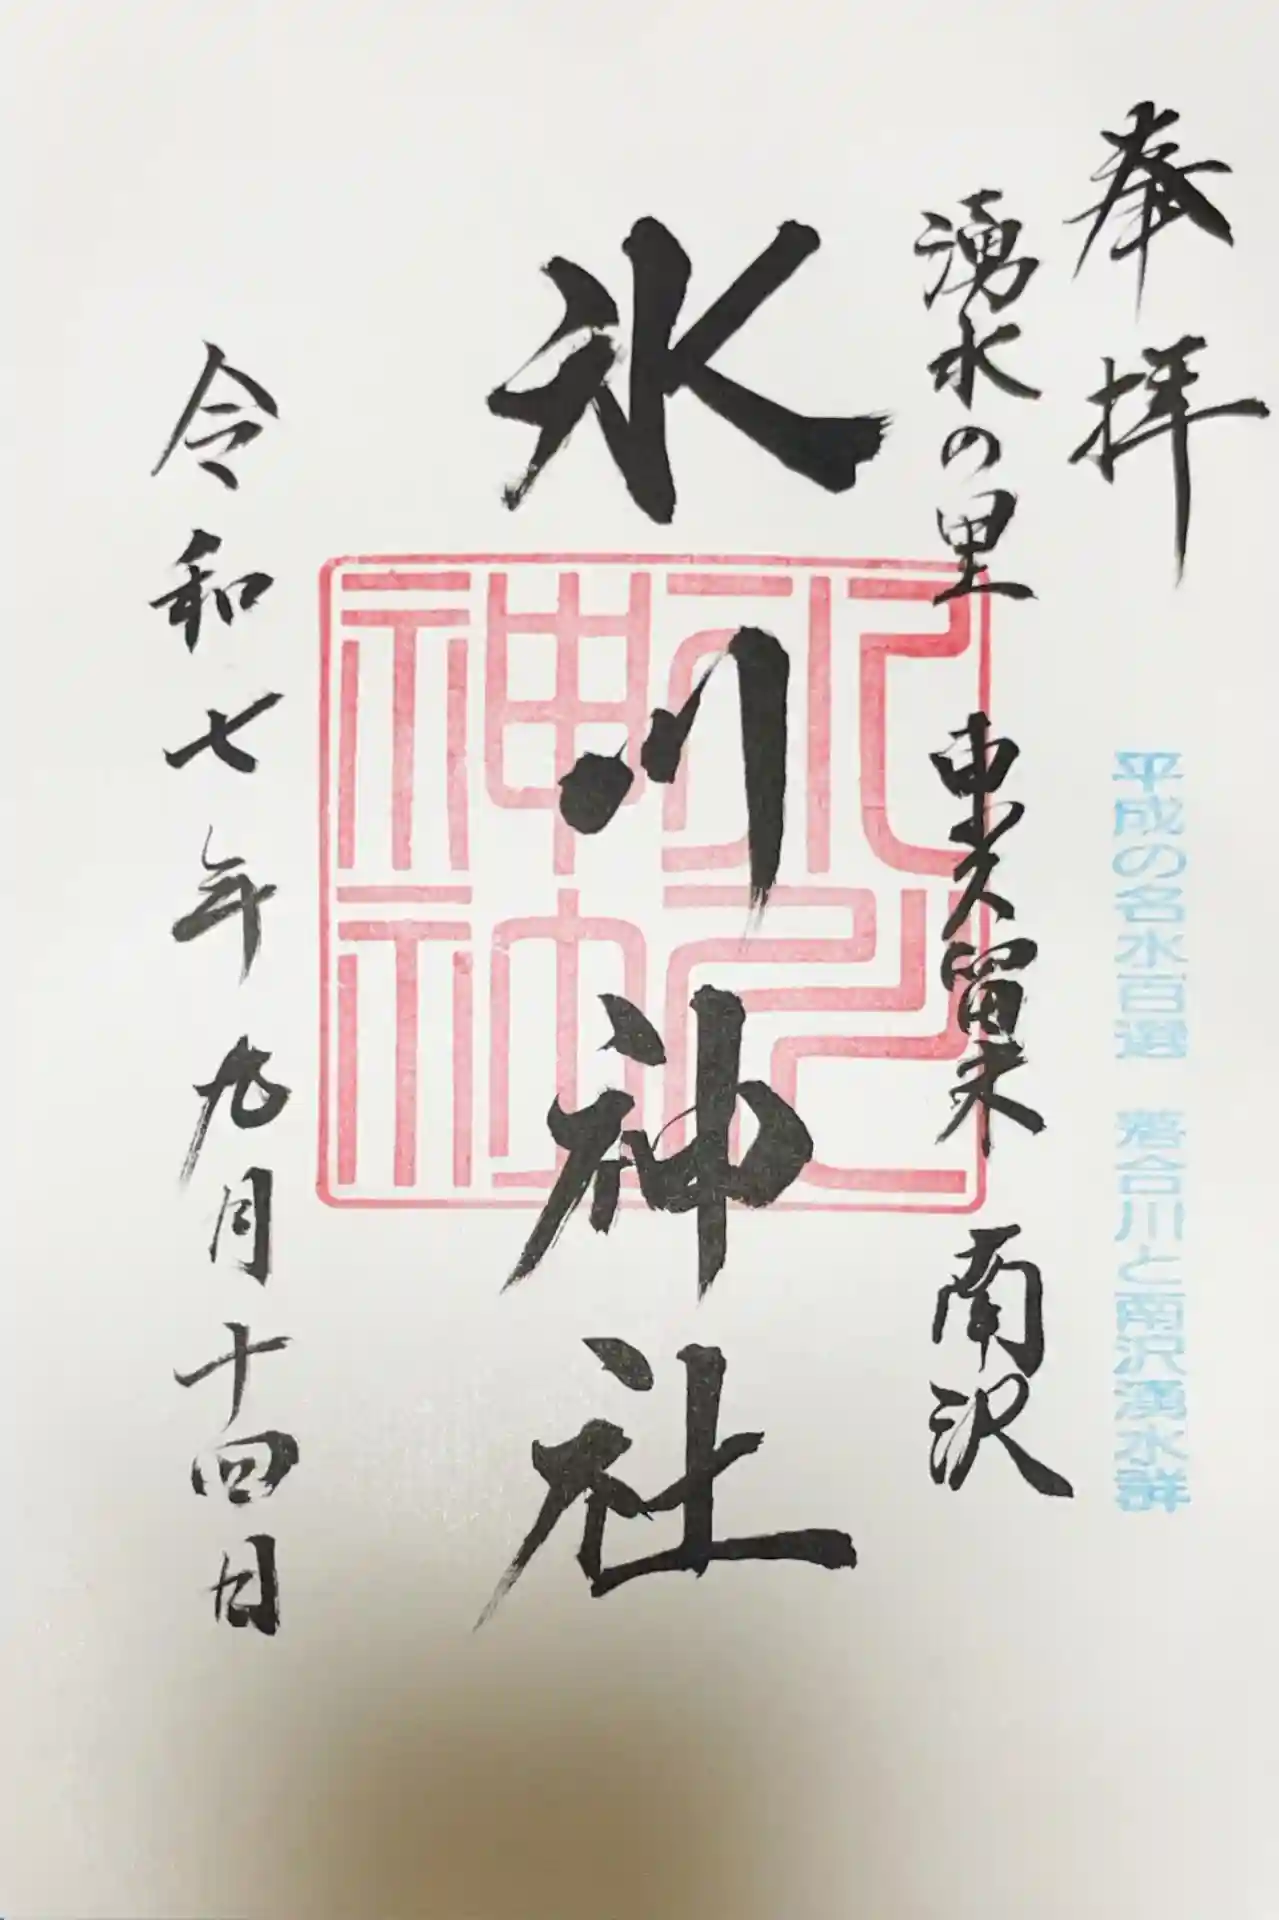 奉拝
平成の名水百選 落合川と南沢湧水群
湧水の里 東久留米 南沢
氷川神社
氷川神社
令和七年九月十四日